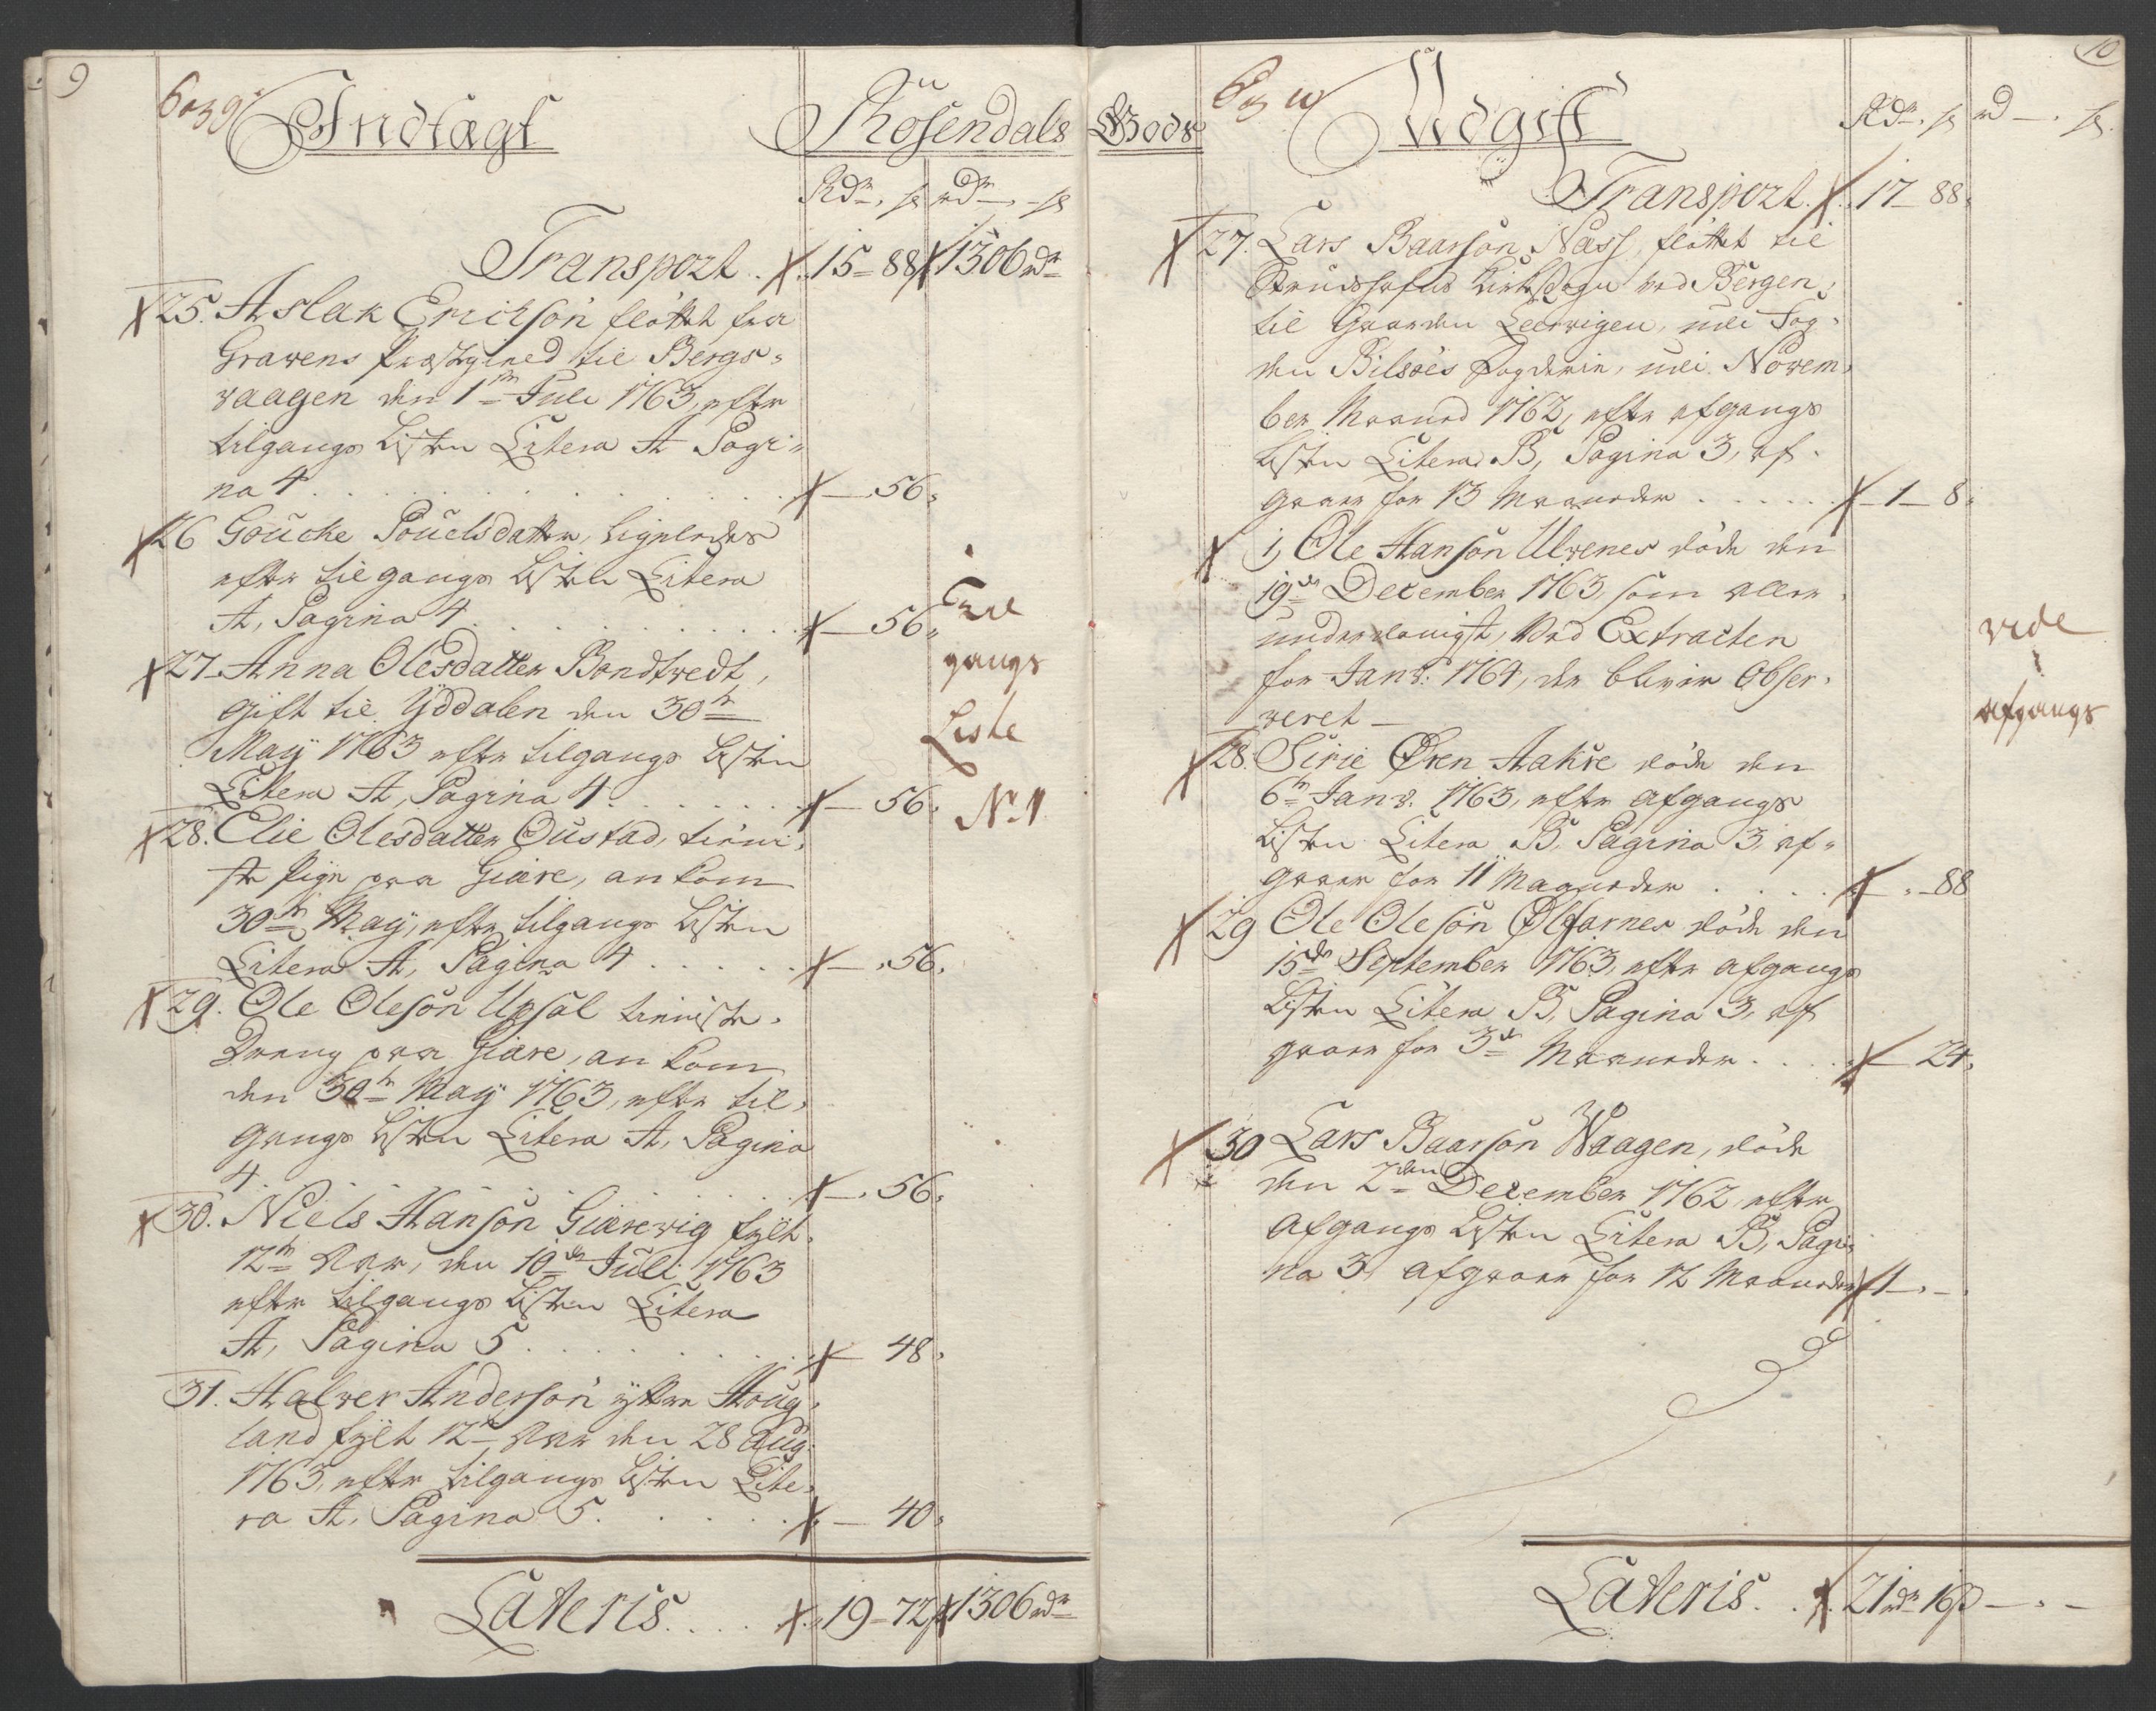 9
Indtægt
Rosendals
Rdr. s rdr. s
Transport . 15-88 1306 rdr
25. Aslak Erichsön flöttet fra
Gravens Præstegield til Bergs-
vaagen den 1ste Juli 1763, efter
tilgangs Listen Litera A Pagi-
na 4 . . . 56.
26 Gouche Pouelsdatter, ligeledes
efter tilgangs Listen Litera
A, Pagina 4 . . . 56.
27. Anna Olesdatter Bondtvedt,
gift til Yddalen den 30te
May 1763 efter tilgangs Listen
Litera A, Pagina 4 . . . 56.
28. Elie Olesdatter Oustad, tieni-
ste Pige paa Giære, ankom
30te May, efter tilgangs Listen
Litera A, Pagina 4 . . . 56.
29. Ole Olesön Upsal tieniste-
Dreng paa Giære, ankom
den 30te May 1763, efter til-
gangs Listen Litera A, Pagina
4 . . . 56.
30. Niels Hansön Giærevig fylt
12te Aar, den 10de Juli 1763
efter tilgangs Listen Litera
A, Pagina 5 . . . 48.
31. Halver Andersön yttre Houg-
land fylt 12te Aar den 28 Aug.
1763, efter tilgangs Listen Lite-
ra A, Pagina 5 . . . 40.
Lateris . . . 19-72 1306 rdr
Til
gangs
Liste
No. 1
10
Gods
Udgift
Rdr. s rd s.
Transport . 17-88.
27. Lars Baarsön Næss, flöttet til
Strudshafns Kirkesogn ved Bergen,
til Gaarden Leervigen, udi Fog-
den Bilsöes Fogderie, udi Novem-
ber Maaned 1762, efter afgangs
Listen Litera B, Pagina 3, af-
gaaer for 13 Maaneder . . . 1-8.
1, Ole Hansön Ulvenes döde den
19de December 1763, som aller-
underdanigst, ved Extracten
for Janv: 1764, der bliver Obser-
veret
28. Sirie Ören Aakre döde den
6te Janv. 1763, efter afgangs
Listen Litera B, Pagina 3, af-
gaaer for 11 Maaneder . . . 88
29 Ole Olesön Ölfarnes döde den
15de September 1763, efter afgangs
Listen Litera B, Pagina 3, af
gaaer for 3de Maaneder . . . 24.
30 Lars Baarsön Waagen, döde
den 2den December 1762, efter
Afgangs Listen Litera B, Pagi-
na 3, afgaaer for 12 Maaneder 1
Lateris . . 21 rdr 16 s
vide
afgangs